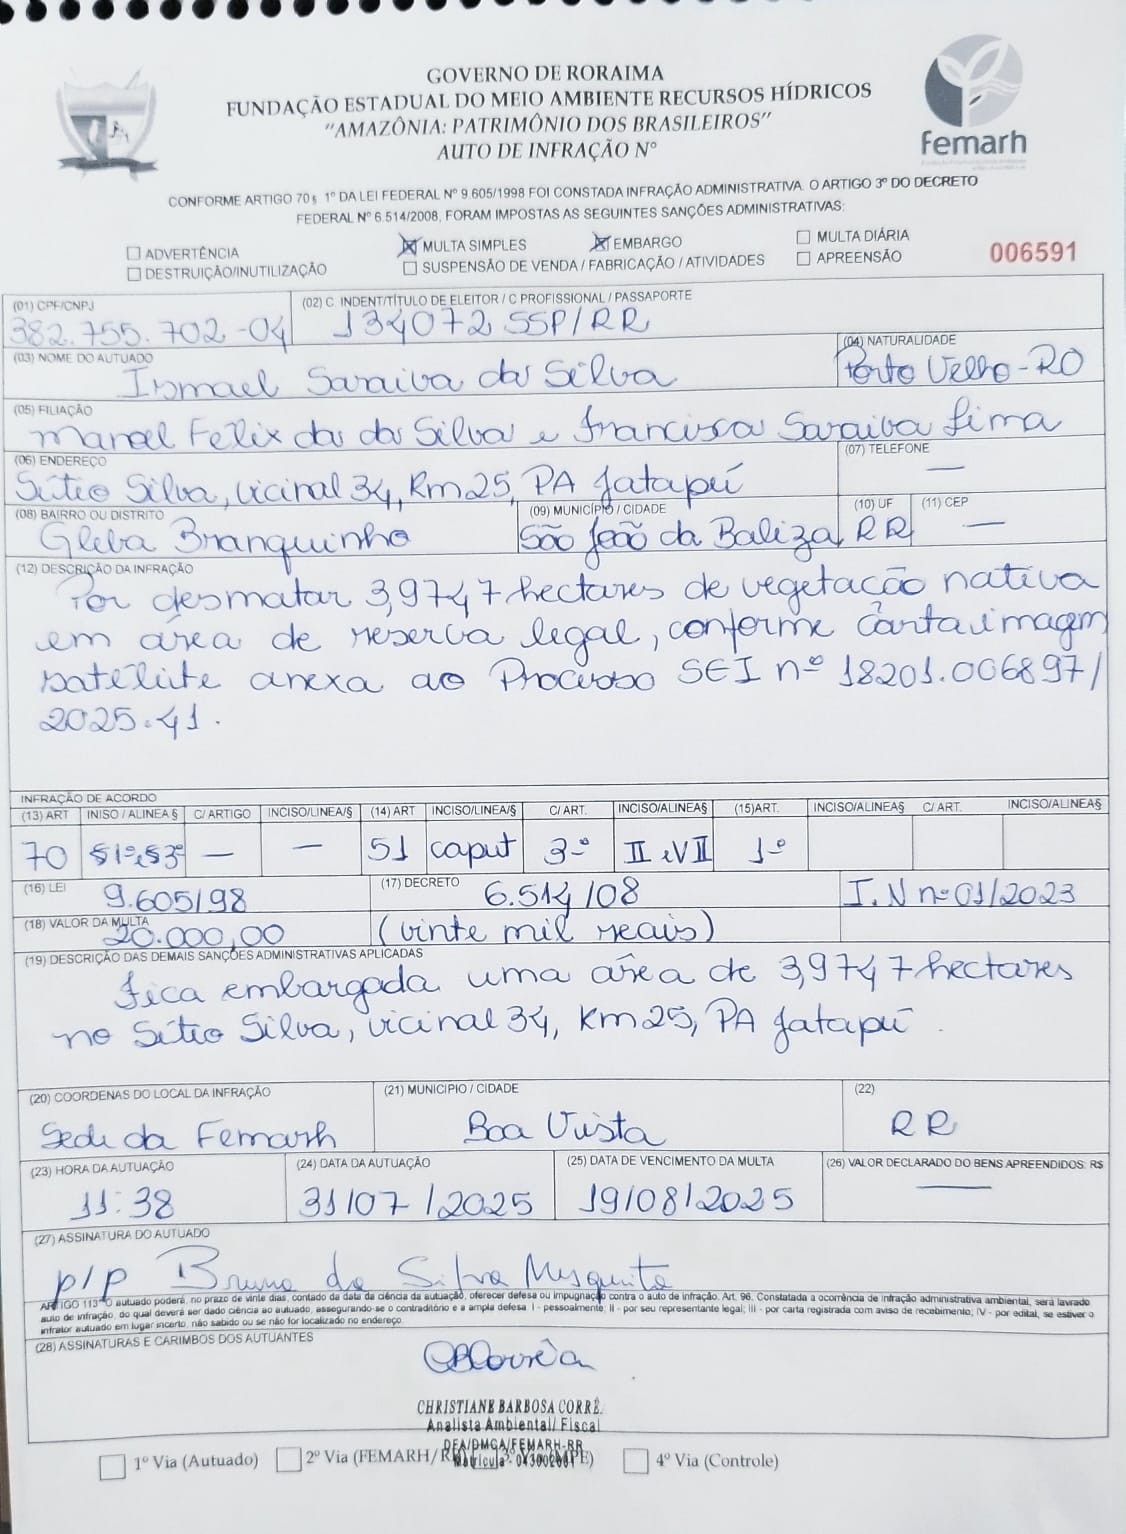 GOVERNO DE RORAIMA
FUNDAÇÃO ESTADUAL DO MEIO AMBIENTE RECURSOS HÍDRICOS
"AMAZÔNIA: PATRIMÔNIO DOS BRASILEIROS"
AUTO DE INFRAÇÃO Nº
femarh
CONFORME ARTIGO 70 § 1º DA LEI FEDERAL Nº 9.605/1998 FOI CONSTADA INFRAÇÃO ADMINISTRATIVA. O ARTIGO 3º DO DECRETO
FEDERAL Nº 6.514/2008, FORAM IMPOSTAS AS SEGUINTES SANÇÕES ADMINISTRATIVAS:
ADVERTÊNCIA MULTA SIMPLES EMBARGO MULTA DIÁRIA
DESTRUIÇÃO/INUTILIZAÇÃO SUSPENSÃO DE VENDA / FABRICAÇÃO / ATIVIDADES APREENSÃO 006591
(01) CPF/CNPJ (02) C. INDENT/TÍTULO DE ELEITOR / C PROFISSIONAL / PASSAPORTE
382.755.702-04 134072 SSP/RR
(03) NOME DO AUTUADO (04) NATURALIDADE
Ismael Saraiva da Silva Porto Velho-RO
(05) FILIAÇÃO
Manoel Felix da da Silva e Francisca Saraiva Lima
(06) ENDEREÇO (07) TELEFONE
Sítio Silva, vicinal 34, Km 25, PA Jatapú —
(08) BAIRRO OU DISTRITO (09) MUNICÍPIO / CIDADE (10) UF (11) CEP
Gleba Branquinho São João da Baliza RR —
(12) DESCRIÇÃO DA INFRAÇÃO
Por desmatar 3,9747 hectares de vegetação nativa
em área de reserva legal, conforme carta imagem
satélite anexa ao Processo SEI nº 18201.006897/
2025.41.
INFRAÇÃO DE ACORDO
(13) ART INISO / ALINEA § C/ ARTIGO INCISO/LINEA/§ (14) ART INCISO/LINEA/§ C/ ART. INCISO/ALINEA§ (15)ART. INCISO/ALINEA§ C/ ART. INCISO/ALINEA§
70 §1º,§3º — — 51 caput 3º II e VII 1º
(16) LEI 9.605/98 (17) DECRETO 6.514/08 I.N nº 01/2023
(18) VALOR DA MULTA
20.000,00 (vinte mil reais)
(19) DESCRIÇÃO DAS DEMAIS SANÇÕES ADMINISTRATIVAS APLICADAS
Fica embargada uma área de 3,9747 hectares
no Sítio Silva, vicinal 34, Km 25, PA Jatapú.
(20) COORDENAS DO LOCAL DA INFRAÇÃO (21) MUNICIPIO / CIDADE (22)
Sede da Femarh Boa Vista RR
(23) HORA DA AUTUAÇÃO (24) DATA DA AUTUAÇÃO (25) DATA DE VENCIMENTO DA MULTA (26) VALOR DECLARADO DO BENS APREENDIDOS: R$
11:38 31/07/2025 19/08/2025 —
(27) ASSINATURA DO AUTUADO
p/p Bruno da Silva Mesquita
ARTIGO 113 O autuado poderá, no prazo de vinte dias, contado da data da ciência da autuação, oferecer defesa ou impugnação contra o auto de infração. Art. 96. Constatada a ocorrência de infração administrativa ambiental, será lavrado
auto de infração, do qual deverá ser dado ciência ao autuado, assegurando-se o contraditório e a ampla defesa. I - pessoalmente; II - por seu representante legal; III - por carta registrada com aviso de recebimento; IV - por edital, se estiver o
infrator autuado em lugar incerto, não sabido ou se não for localizado no endereço.
(28) ASSINATURAS E CARIMBOS DOS AUTUANTES
CHRISTIANE BARBOSA CORRÊ
Analista Ambiental/ Fiscal
DFA/DMCA/FEMARH-RR
1º Via (Autuado) 2º Via (FEMARH/ 4º Via (Controle)